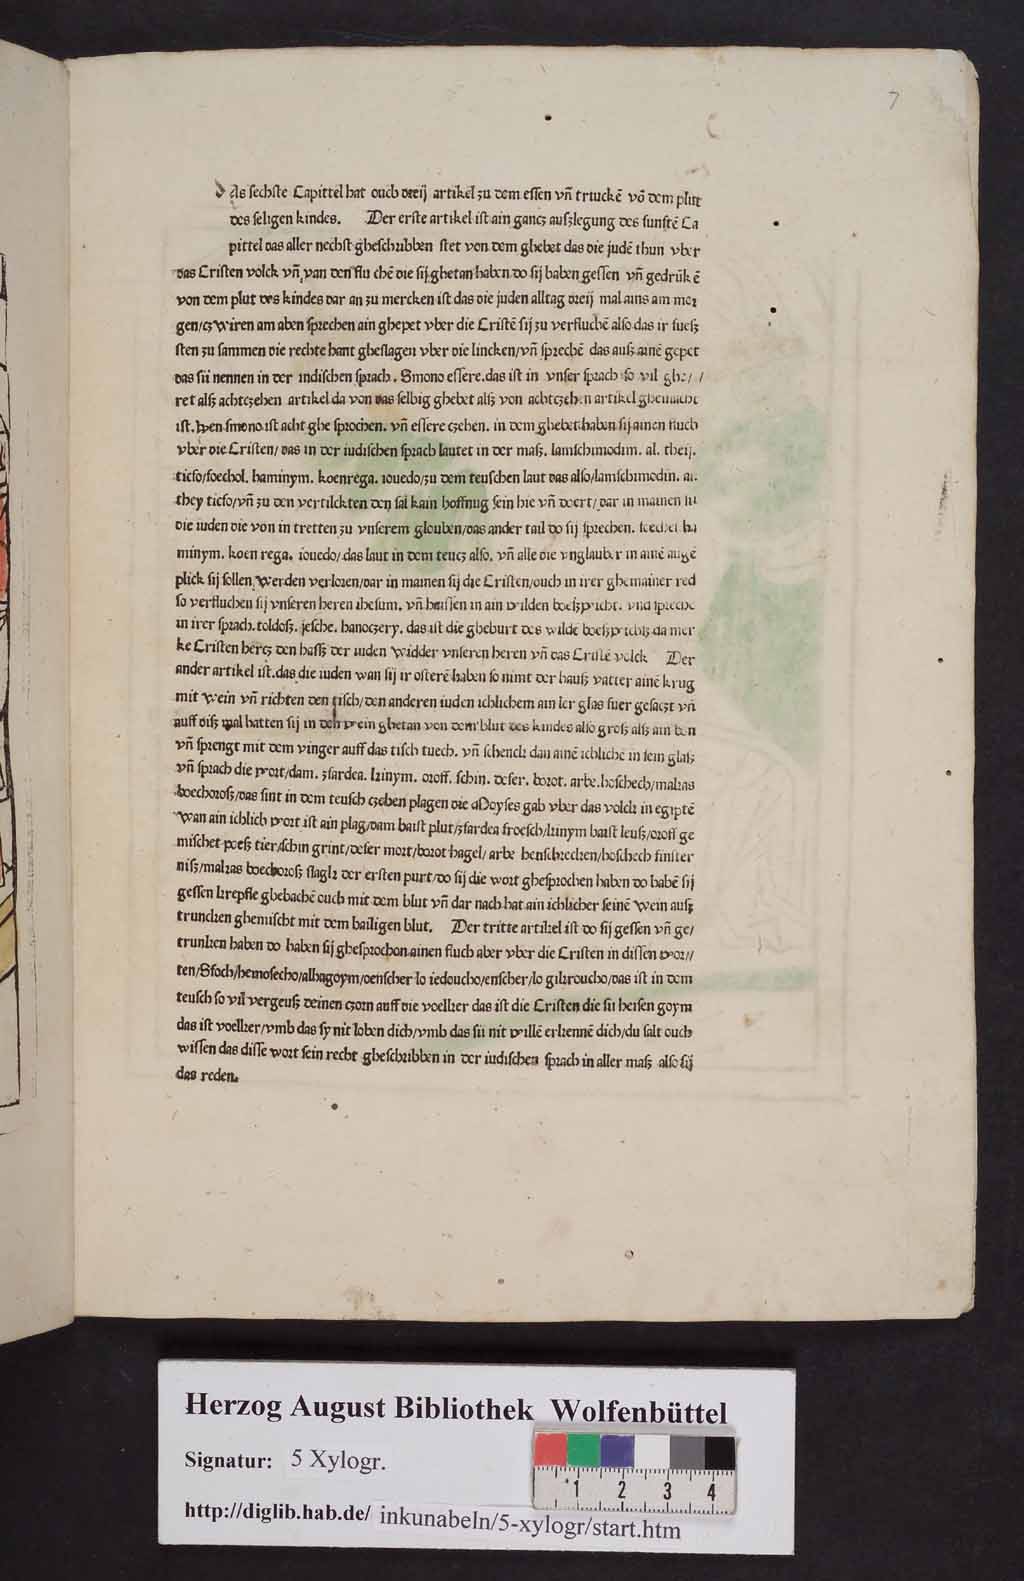 7
As sechste Capittel hat ouch dreij artikel zu dem essen vñ trincke͂ võ dem plut
des seligen kindes. Der erste artikel ist ain gancz auslegung des funfte͂ Ca
pittel das aller nechst gheschribben stet von dem ghebet das die jude͂ thun vber
das Cristen volck vñ van den flu che͂ die sij ghetan haben do sij haben gessen vñ gedru͂k e͂
von dem plut des kindes dar an zu mercken ist das die juden alltag dreij mal ains am mor
gen/czwiren am aben sprechen ain ghepet vber die Criste͂ sij zu verfluche͂ also das ir fuesz
sten zu sammen die rechte hant gheslagen vber die lincken/vñ spreche͂ das ausz aine͂ gepet
das sii nennen in der iudischen sprach. Smono essere.das ist in vnser sprach so vil ghe//
ret alsz achtczehen artikel da von das selbig ghebet alsz von achtczehen artikel ghemacht
ist. wen smono ist acht ghe sprochen. vñ essere czehen. in dem ghebet haben sij ainen fluch
vber die Cristen/das in der iudischen sprach lautet in der masz. lamschimodim. al. theij.
ticso/foechol. haminym. koenrega. iouedo/zu dem teuschen laut das also/lamschimodin. al.
they ticso/vñ zu den vertilckten den sal kain hoffnug sein hie vñ doert/dar in mainen sii
die iuden die von in tretten zu vnserem glouben/das ander tail do sij sprechen. foechel ha
minym. koen rega. iouedo/.das laut in dem teucz also. vñ alle die vnglauber in aine͂ auge͂
plick sij sollen werden verloren/dar in mainen sij die Cristen/ouch in irer ghemainer red
so verfluchen sij vnseren heren ihesum. vñ haissen in ain wilden boeszwicht. vnd spreche͂
in irer sprach. toldosz. jesche. hanoczery. das ist die gheburt des wilde͂ boeszwichtz da mer
ke Cristen hercz den hassz der iuden widder vnseren heren vñ das Criste͂ volck Der
ander artikel ist.das die iuden wan sij ir ostere͂ haben so nimt der hausz vatter aine͂ krug
mit wein vñ richten den tisch/den anderen iuden ichlichem ain ler glas fuer gesaczt vñ
auff disz mal hatten sij in den wein ghetan von dem blut des kindes also grosz alsz ain bon
vñ sprengt mit dem vinger auff das tisch tuech. vñ schenck dan aine͂ ichliche͂ in sein glasz
vñ sprach die wort/dam. zfardea. kinym. oroff. schin. defer. borot. arbe.hoschech/makas
boechorosz/das sint in dem teusch czehen plagen die Moyses gab vber das volck in egipte͂
Wan ain ichlich wort ist ain plag/dam baist plut/zfardea froesch/kinym haist leusz/oroff ge
mischet poesz tier/schin grint/defer mort/borot hagel/ arbe henschrecken/hoschech finster
nisz/makas boechorosz slagk der ersten purt/do sij die wort ghesprochen haben do habe͂ sij
gessen krepfle ghebache͂ ouch mit dem blut vñ dar nach hat ain ichlicher seine͂ wein ausz
truncken ghemischt mit dem hailigen blut. Der tritte artikel ist do sij gessen vñ ge/
trunken haben do haben sij ghesprochon ainen fluch aber vber die Cristen in dissen wor//
ten/Sfoch/hemosecho/alhagoym/oenscher lo iedoucho/enscher/lo gikroucho/das ist in dem
teusch so vil vergeusz deinen czorn auff die voelker das ist die Cristen die sii heisen goym
das ist voelker/vmb das sy nit loben dich/vmb das sii nit wille͂ erkenne͂ dich/du salt ouch
wissen das disse wort sein recht gheschribben in der iudischen sprach in aller masz also sij
das reden.
Herzog August Bibliothek Wolfenbüttel
Signatur: 5 Xylogr.
1 2 3 4
http://diglib.hab.de/ inkunabeln/5-xylogr/start.htm